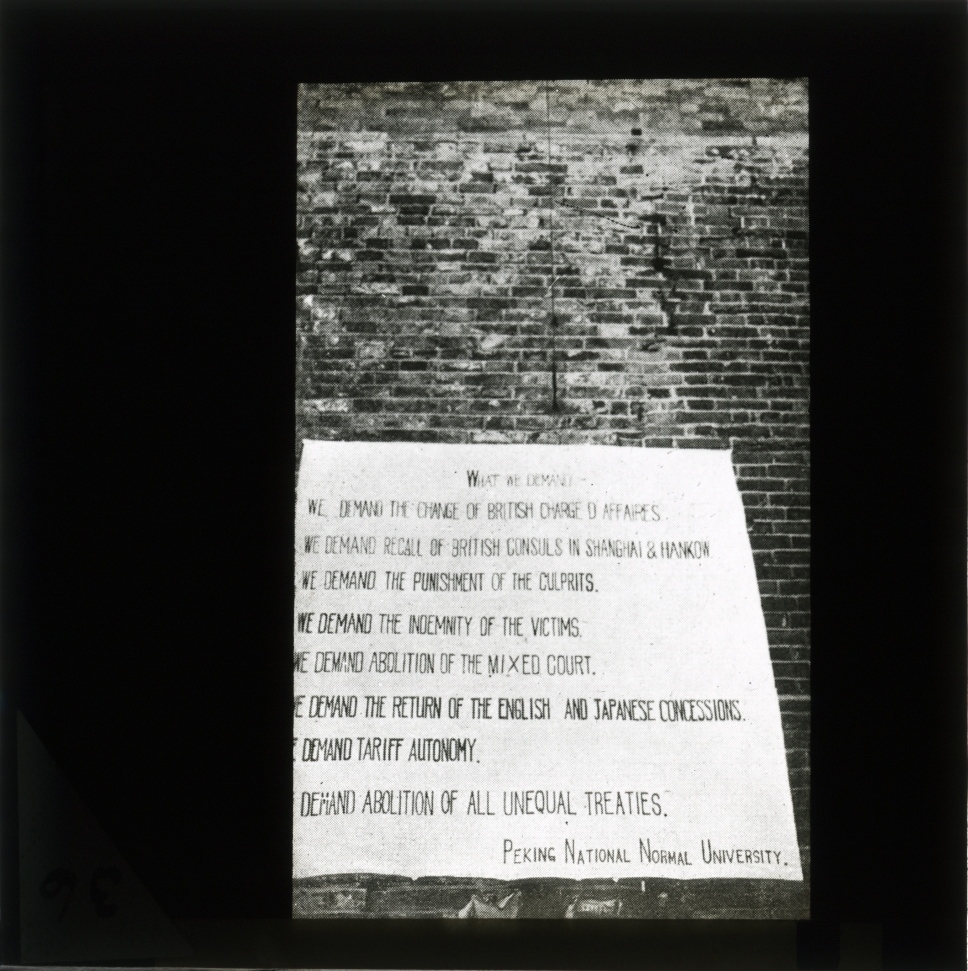 WHAT WE DEMAND -.
WE, DEMAND THE CHANGE OF BRITISH CHARGE D AFFAIRES.
WE DEMAND RECALL OF BRITISH CONSULS IN SHANGHAI & HANKOW
WE DEMAND THE PUNISHMENT OF THE CULPRITS.
WE DEMAND THE INDEMNITY OF THE VICTIMS.
WE DEMAND ABOLITION OF THE MIXED COURT.
E DEMAND THE RETURN OF THE ENGLISH AND JAPANESE CONCESSIONS.
DEMAND TARIFF AUTONOMY.
DEMAND ABOLITION OF ALL UNEQUAL TREATIES.
PEKING NATIONAL NORMAL UNIVERSITY.
36